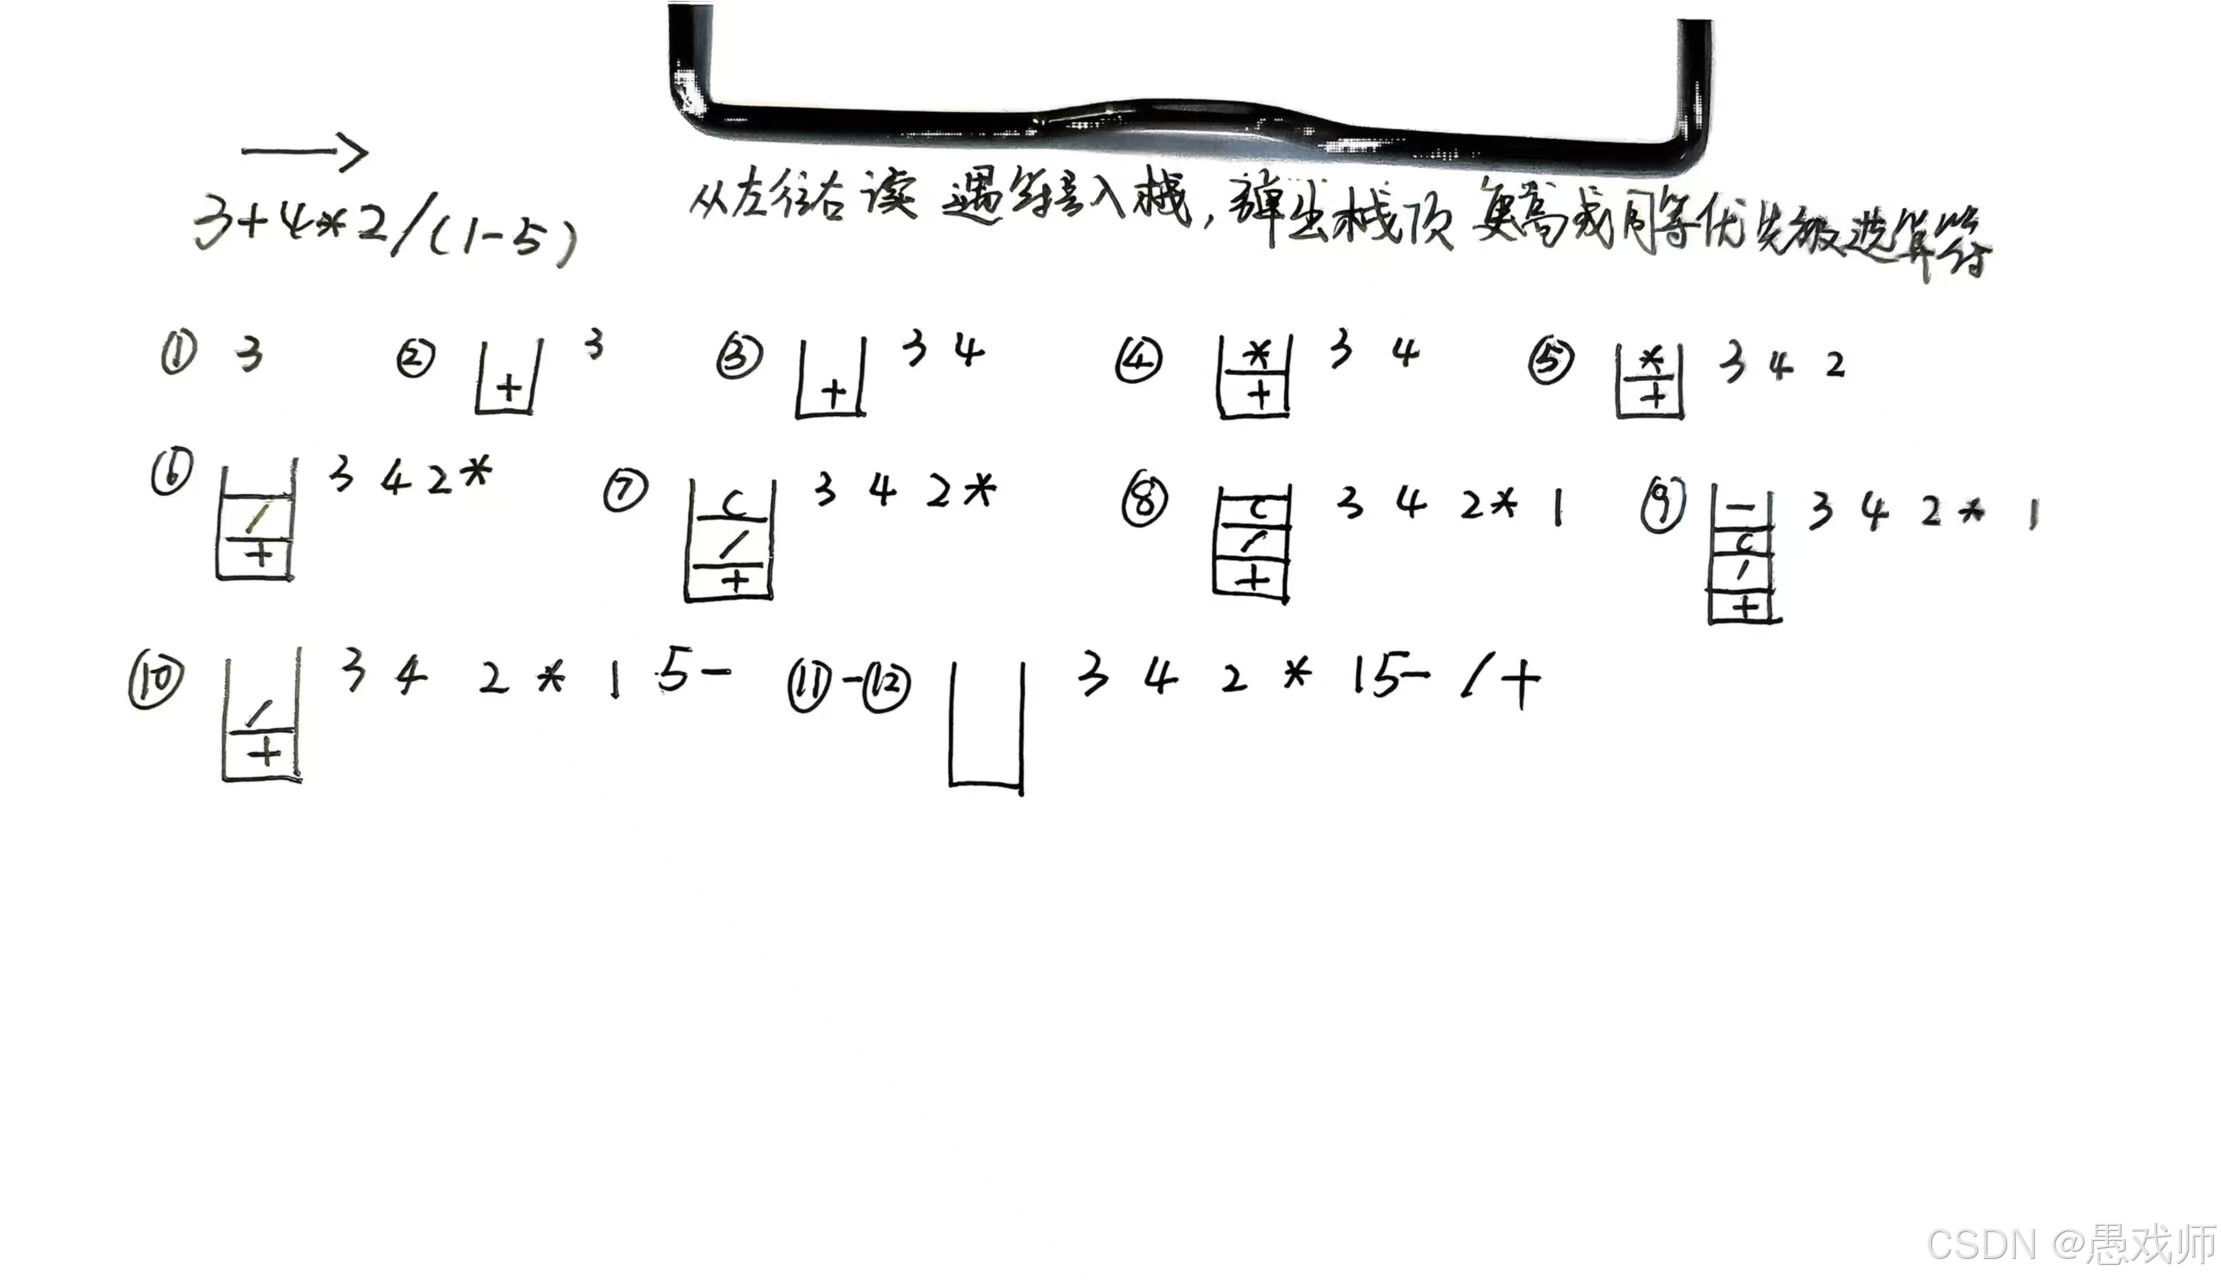 3+4*2/(1-5)
从左往右读 遇符号入栈，弹出栈顶 更高或同等优先级运算符
① 3 ② + 3 ③ + 3 4 ④ * + 3 4 ⑤ * + 3 4 2
⑥ / + 3 4 2 * ⑦ ( / + 3 4 2 * ⑧ ( / + 3 4 2 * 1 ⑨ - ( / + 3 4 2 * 1
⑩ / + 3 4 2 * 1 5 - ⑪-⑫ 3 4 2 * 1 5 - / +
CSDN @愚戏师